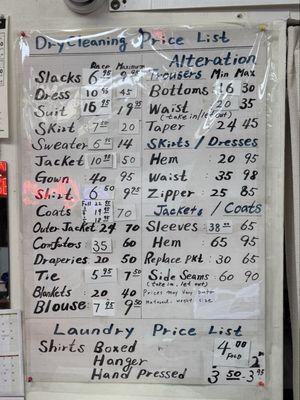 Dry Cleaning Price List
Base Maximum
Slacks 6 95 9 95
Dress 10 95 45
Suit 16 95 19 95
Skirt 7 50 20
Sweater 6 95 14
Jacket 10 95 50
Gown 40 95
Shirt 6 50 9 75
Coats Full 22 95 3/4 19 95 70
Outer Jacket 24 70
Comforters 35 60
Draperies 20 50
Tie 5 95 7 50
Blankets 20 40
Blouse 7 95 9 50
Alteration
Trousers Min Max
Bottoms 16 30
Waist 20 35
(take in/let out)
Taper 24 45
Skirts / Dresses
Hem 20 95
Waist 35 98
Zipper 25 85
Jackets / Coats
Sleeves 38 65
Hem 65 95
Replace PKt 30 65
Side Seams 60 90
(take in, let out)
Prices may vary
Material, weight size
Laundry Price List
Shirts Boxed 4 00 FOLD
Hanger
Hand Pressed 3 50 - 3 95